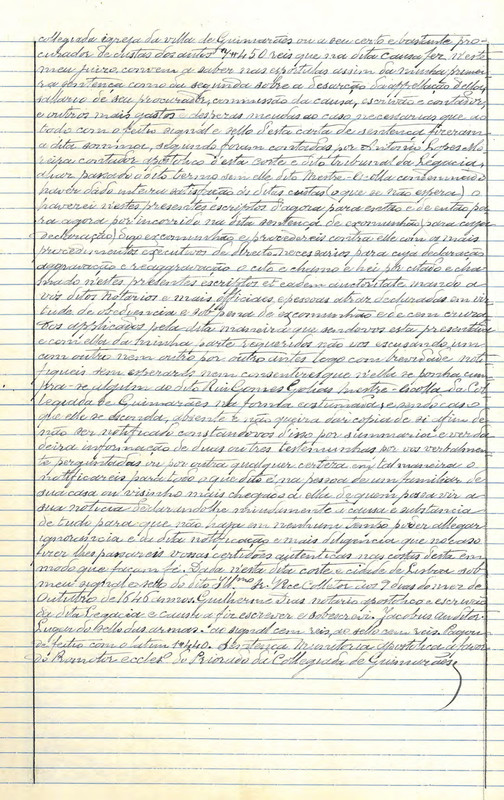 collegiada igreja da villa de Guimarães ou a seu certo e bastante pro-
curador de custas dos autos 7$450 reis que na dita causa fez neste
meu juizo, convem a saber nas apostolas assim da minha primei-
ra sentença como da segunda sobre a deserção da appellação dellos,
sallario de seu procurador, commissão da causa, escrivão e contador,
e outros mais gastos e despezas meudas ao caso necessarias que ao
todo com o feitio signal e sello desta carta de sentença fizeram
a dita somma, segundo foram contadas por Antonio Lopes Mo
contador apostolico d'esta corte e dito tribunal da Legacia,
e por passado o dito termo sem elle dito Mestre-Escolla condemnado
haver dado inteira satisfação de ditas custas (o que se não espera) o
haverei nestes presentes escriptos d'agora para então e de então pa-
ra agora por incorrido na dita sentença de excomunhão, para cuja
declaração digo excommunhão e procedereis contra elle com os mais
procedimentos executivos de direito necessarios para cuja declaração
aggravação e reaggravação o cito e chamo e hei por citado e cha-
mado nestes presentes escriptos et eadem autoritate, mando a
vós ditos notarios e mais officiaes, e pessoas atraz declaradas em vir-
tude de obediencia e sob pena de excommunhão e de cem cruza-
dos applicados pela dita maneira que sendovos esta presentada
e com ella da minha parte requeridos não vos escusando um
com outro nem outro por outro antes logo com brevidade noti-
fiqueis sem esperardes nem consentirdes que n'ella se ponha cum-
pra-se algum ao dito Rui Gomes Golias Mestre-escolla da Col-
legiada de Guimarães na forma costumada, e sendo caso
que elle se esconda, absente e não queira dar copia de si afim de
não ser notificado constandovos d'isso por summaria e verda-
deira informação de duas ou tres testemunhas por vós verbalmen-
te perguntadas ou por outra qualquer certeza em tal maneira o
notificareis para todo o que dito é na pessoa de um familiar de
sua casa ou visinho mais chegado a ella de quem possa vir a
sua noticia declarandolhe miudamente a causa e substancia
de tudo para que não haja em nenhum tempo poder allegar
ignorancia e da dita notificação e mais diligencia que no caso
fizer lhes passareis vossas certidões autenticas nas costas desta em
modo que façam fé. Dada nesta dita corte e cidade de Lisboa sob
meu signal e sello do dito Ill.mo Sr. Vice Colleitor aos 9 dias do mez de
Outubro de 1646 annos. Guilherme Dias notario apostolico e escrivão
da dita Legacia e causa a fiz escrever e sobscrevi. Jacobus Auditor.
Lugar do sello das armas. Ao signal cem reis, ao sello cem reis. Pagou
de feitio com o al em 1$440. Sentença monitoria apostolica a favor
do Promotor eccles. do Priorado da Collegiada de Guimarães.